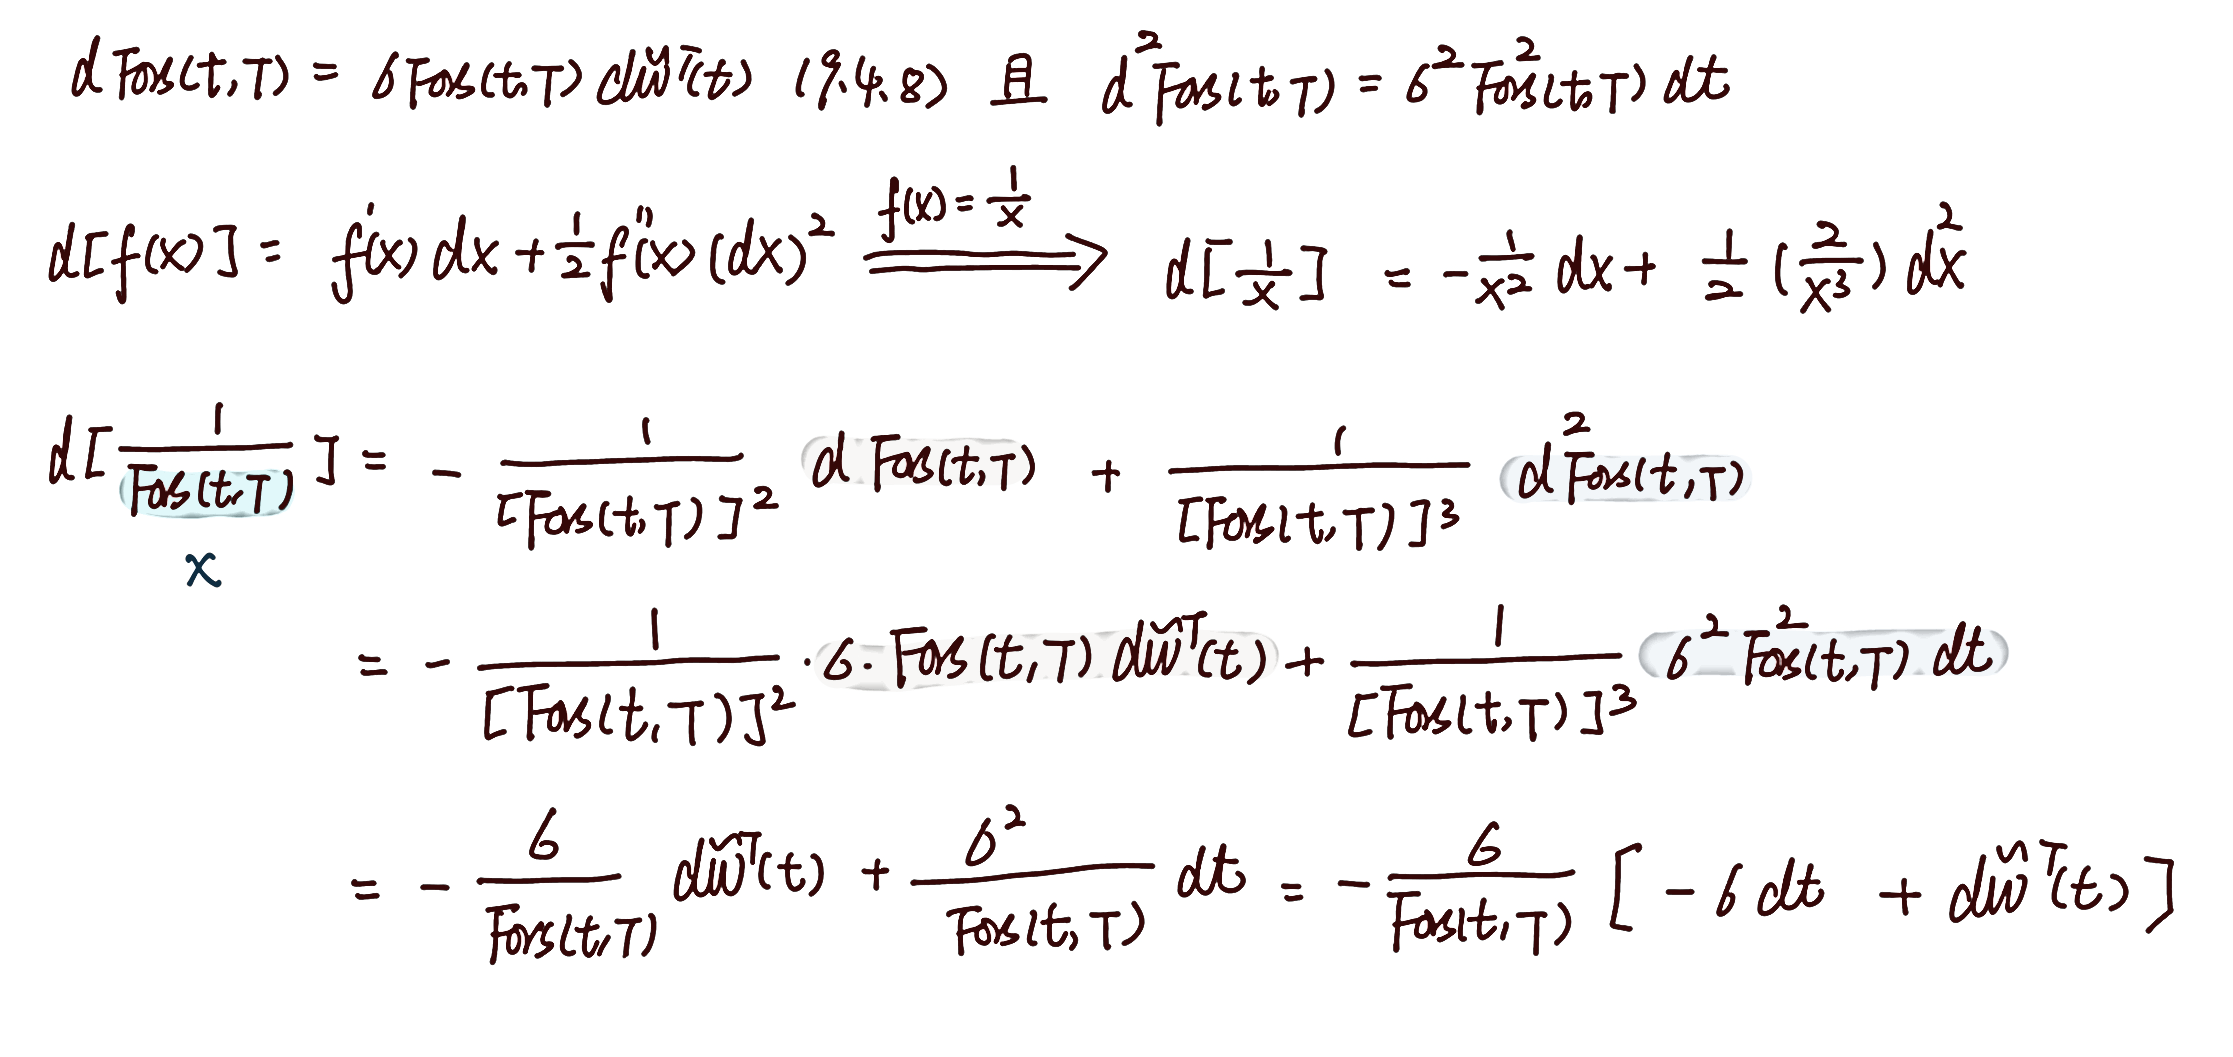 d For_S(t,T) = σ For_S(t,T) dW̃^T(t) (9.4.8) 且 d² For_S(t,T) = σ² For_S²(t,T) dt
d[f(x)] = f'(x) dx + 1/2 f''(x) (dx)² ⟹ (f(x) = 1/x) d[1/x] = -1/x² dx + 1/2 (2/x³) d²x
d[1/For_S(t,T)] = - 1/[For_S(t,T)]² d For_S(t,T) + 1/[For_S(t,T)]³ d² For_S(t,T)
x
= - 1/[For_S(t,T)]² · σ · For_S(t,T) dW̃^T(t) + 1/[For_S(t,T)]³ σ² For_S²(t,T) dt
= - σ/For_S(t,T) dW̃^T(t) + σ²/For_S(t,T) dt = - σ/For_S(t,T) [ - σ dt + dW̃^T(t) ]